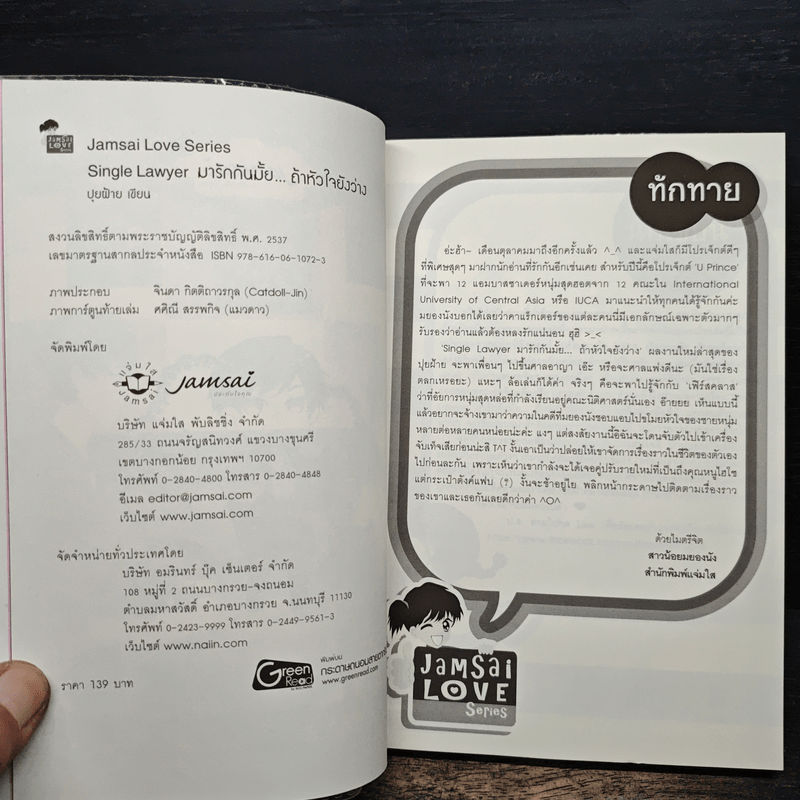 Jamsai Love Series
Single Lawyer มารักกันมั้ย... ถ้าหัวใจยังว่าง
ปุยฝ้าย เขียน
สงวนลิขสิทธิ์ตามพระราชบัญญัติลิขสิทธิ์ พ.ศ. 2537
เลขมาตรฐานสากลประจำหนังสือ ISBN 978-616-06-1072-3
ภาพประกอบ จินดา กิตติถาวรกุล (Catdoll-Jin)
ภาพการ์ตูนท้ายเล่ม ศศิณี สรรพกิจ (แมวดาว)
จัดพิมพ์โดย
แจ่มใส
Jamsai
jamsai
บริษัท แจ่มใส พับลิชชิ่ง จำกัด
285/33 ถนนจรัญสนิทวงศ์ แขวงบางขุนศรี
เขตบางกอกน้อย กรุงเทพฯ 10700
โทรศัพท์ 0-2840-4800 โทรสาร 0-2840-4848
อีเมล editor@jamsai.com
เว็บไซต์ www.jamsai.com
จัดจำหน่ายทั่วประเทศโดย
บริษัท อมรินทร์ บุ๊ค เซ็นเตอร์ จำกัด
108 หมู่ที่ 2 ถนนบางกรวย-จงถนอม
ตำบลมหาสวัสดิ์ อำเภอบางกรวย จ.นนทบุรี 11130
โทรศัพท์ 0-2423-9999 โทรสาร 0-2449-9561-3
เว็บไซต์ www.naiin.com
Green Read
พิมพ์บน
กระดาษถนอมสายตา
www.greenread.com
ราคา 139 บาท
ทักทาย
อ่ะฮ้า~ เดือนตุลาคมมาถึงอีกครั้งแล้ว ^_^ และแจ่มใสก็มีโปรเจ็กต์ดีๆ
ที่พิเศษสุดๆ มาฝากนักอ่านที่รักกันอีกเช่นเคย สำหรับปีนี้คือโปรเจ็กต์ 'U Prince'
ที่จะพา 12 แอมบาสซาเดอร์หนุ่มสุดฮอตจาก 12 คณะใน International
University of Central Asia หรือ IUCA มาแนะนำให้ทุกคนได้รู้จักกันค่ะ
มยองนังบอกได้เลยว่าคาแร็กเตอร์ของแต่ละคนนี่มีเอกลักษณ์เฉพาะตัวมากๆ
รับรองว่าอ่านแล้วต้องหลงรักแน่นอน ฮุฮิ >_<
'Single Lawyer มารักกันมั้ย... ถ้าหัวใจยังว่าง' ผลงานใหม่ล่าสุดของ
ปุยฝ้าย จะพาเพื่อนๆ ไปขึ้นศาลอาญา เอ๊ะ หรือจะศาลแพ่งดีนะ (มันใช่เรื่อง
ตลกเหรอยะ) แหะๆ ล้อเล่นก็ได้ค่า จริงๆ คือจะพาไปรู้จักกับ 'เฟิร์สคลาส'
ว่าที่อัยการหนุ่มสุดหล่อที่กำลังเรียนอยู่คณะนิติศาสตร์นั่นเอง อ๊ายยย เห็นแบบนี้
แล้วอยากจะจ้างเขามาว่าความในคดีที่มยองนังชอบแอบไปขโมยหัวใจของชายหนุ่ม
หลายต่อหลายคนหน่อยน่ะค่ะ แงๆ แต่สงสัยงานนี้อีฉันจะโดนจับตัวไปเข้าเครื่อง
จับเท็จเสียก่อนน่ะสิ T^T งั้นเอาเป็นว่าปล่อยให้เขาจัดการเรื่องราวในชีวิตของตัวเอง
ไปก่อนละกัน เพราะเห็นว่าเขากำลังจะได้เจอคู่ปรับรายใหม่ที่เป็นถึงคุณหนูไฮโซ
แต่กระเป๋าตังค์แฟบ (?) งั้นจะช้าอยู่ไย พลิกหน้ากระดาษไปติดตามเรื่องราว
ของเขาและเธอกันเลยดีกว่าค่า ^O^
ด้วยไมตรีจิต
สาวน้อยมยองนัง
สำนักพิมพ์แจ่มใส
JAMSAI
LOVE
Series